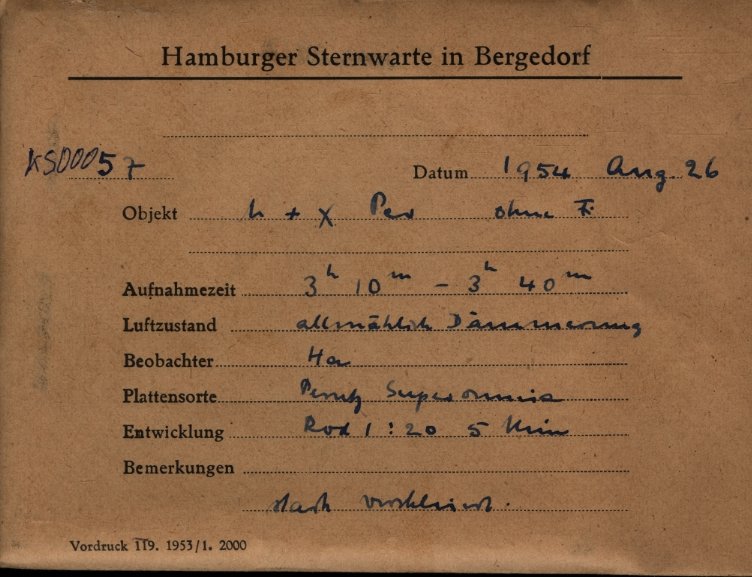 Hamburger Sternwarte in Bergedorf
KS00057 Datum 1954 Aug. 26
Objekt h + χ Per ohne F.
Aufnahmezeit 3h 10m – 3h 40m
Luftzustand allmählich Dämmerung
Beobachter Ha
Plattensorte Perutz Superomnia
Entwicklung Rod 1:20 5 Min
Bemerkungen
stark verschleiert.
Vordruck 119. 1953/1. 2000